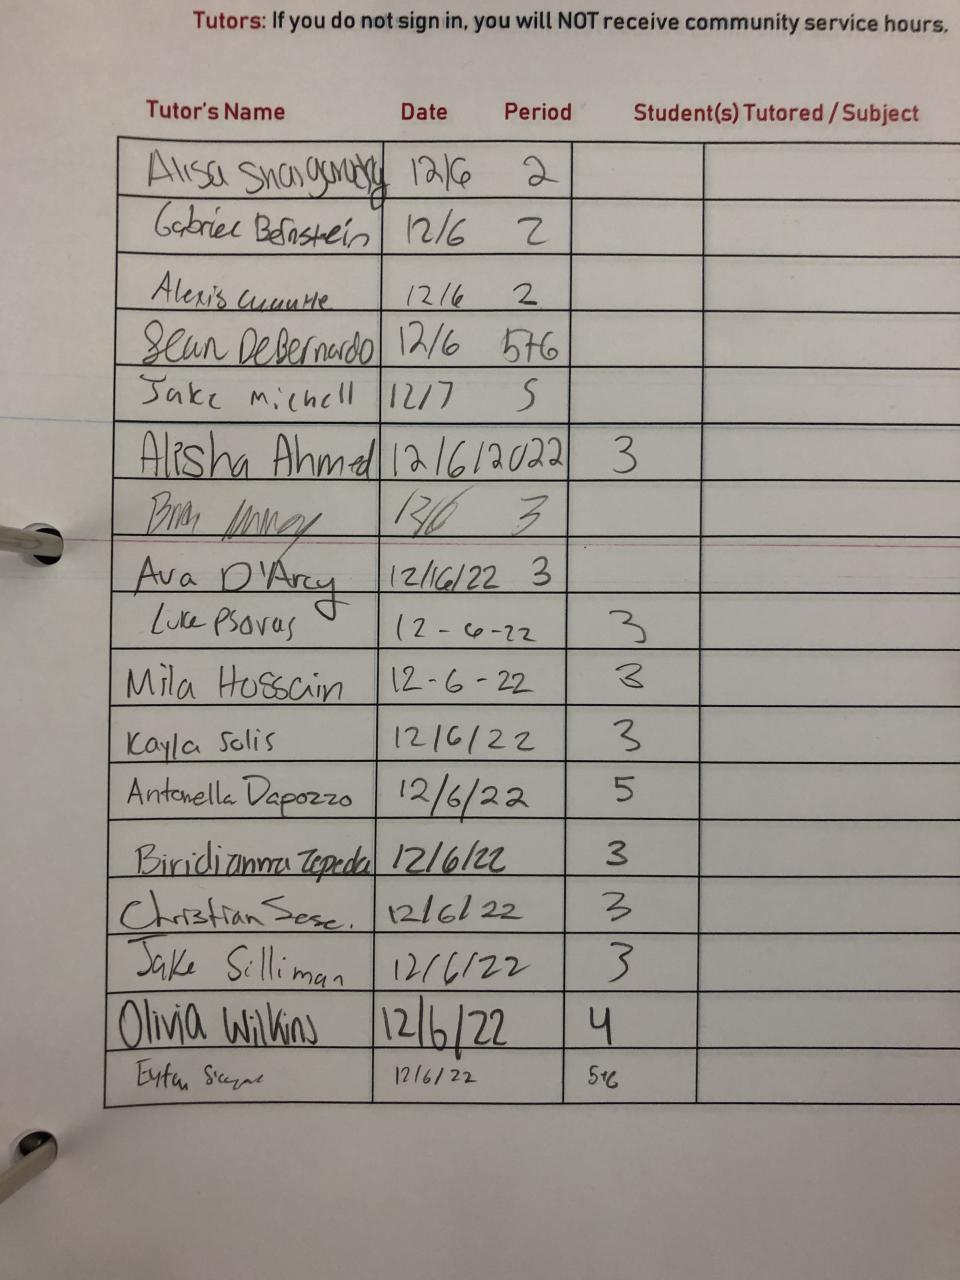 Tutors: If you do not sign in, you will NOT receive community service hours.
Tutor's Name Date Period Student(s) Tutored / Subject
Alisa 12/6 2
Gabriel Bernstein 12/6 2
Alexis 12/6 2
Sean DeBernardo 12/6 5+6
Jake Michell 12/7 5
Alisha Ahmed 12/6/2022 3
3
Ava D'Arcy 12/16/22 3
Luke Psaras 12-6-22 3
Mila Hossain 12-6-22 3
Kayla Solis 12/6/22 3
Antonella Dapozzo 12/6/22 5
Biridianna Zepeda 12/6/22 3
Christian Sesc. 12/6/22 3
Jake Silliman 12/6/22 3
Olivia Wilkins 12/6/22 4
Eytan 12/6/22 5+6